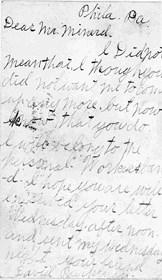 Phila. Pa
Dear Mr. Minard.
I Did not
mean that I though you
did not want me to com
any more, but now
that you do
I will belong to the
personal Workers ban
d. I hope you are well
I received your letter
Wednesday after noon
and sent my Wednesday
night your friend
David